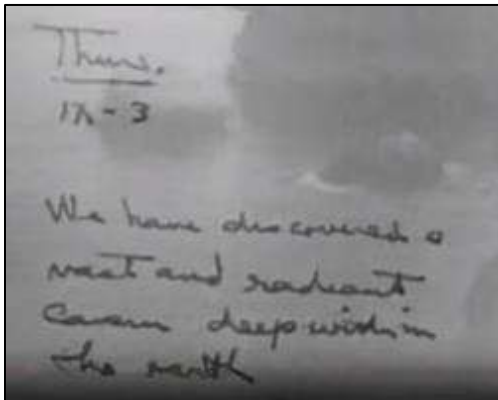 Thurs.
12-3
We have discovered a
vast and radiant
cavern deep within
the earth